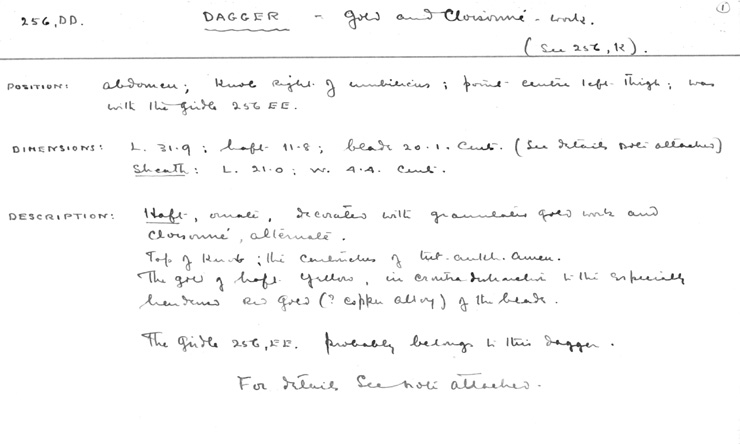 256, DD.
DAGGER - Gold and Cloisonné-work.
①
(See 256, K).
POSITION: abdomen; Knob right of umbilicus; point centre left thigh; was
with the girdle 256 EE.
DIMENSIONS: L. 31.9; haft 11.8; blade 20.1. Cent. (See details note attached)
Sheath: L. 21.0; W. 4.4. Cent.
DESCRIPTION: Haft, ornate, decorated with granulated gold work and
Cloisonné, alternate.
Top of Knob; the cartouches of Tut.ankh.Amen.
The gold of haft yellow, in contradistinction to the especially
hardened red gold (? copper alloy) of the blade.
The girdle 256, EE. probably belongs to this dagger.
For details See note attached.